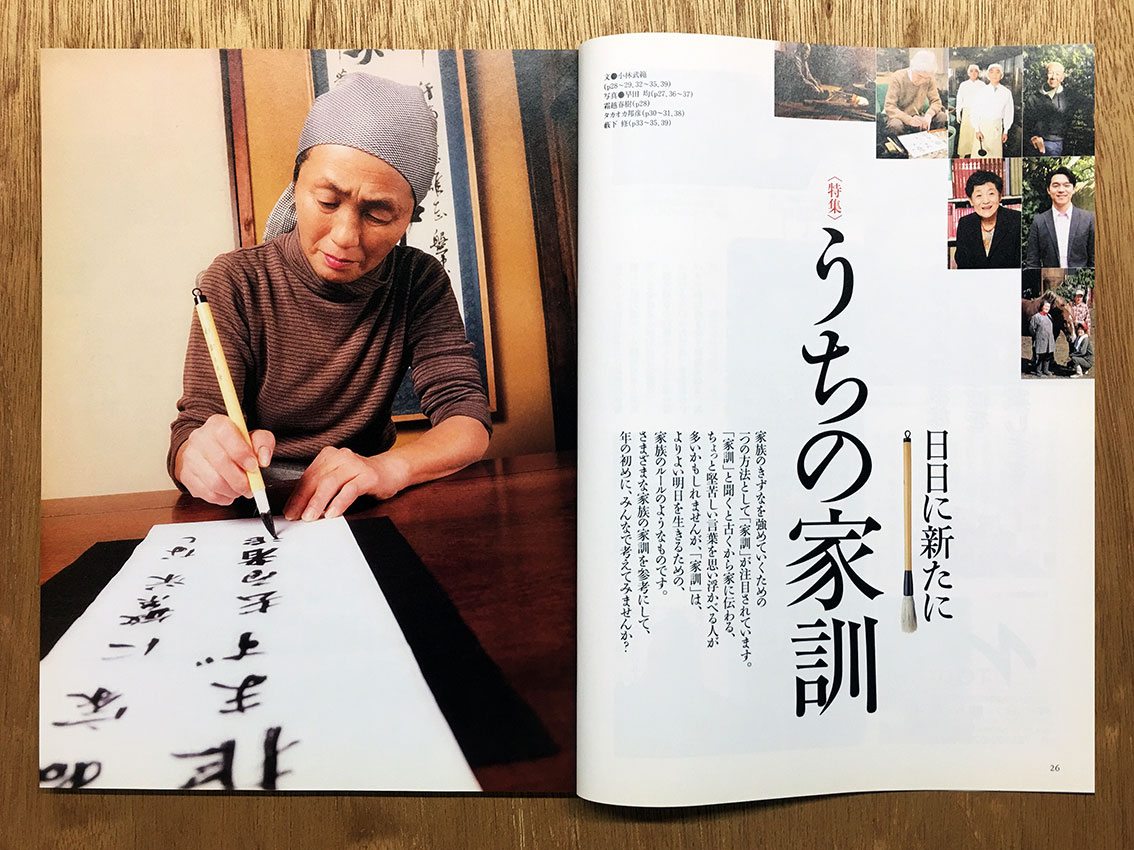 文●小林武範
(p28〜29、32〜35、39)
写真●早田 均(p27、36〜37)
霜越春樹(p28)
タカオカ邦彦(p30〜31、38)
藪下 修(p33〜35、39)
日日に新たに
〈特集〉うちの家訓
家族のきずなを強めていくための
一つの方法として「家訓」が注目されています。
「家訓」と聞くと古くから家に伝わる、
ちょっと堅苦しい言葉を思い浮かべる人が
多いかもしれませんが、「家訓」は、
よりよい明日を生きるための、
家族のルールのようなものです。
さまざまな家族の家訓を参考にして、
年の初めに、みんなで考えてみませんか？
26
家に繁栄なし